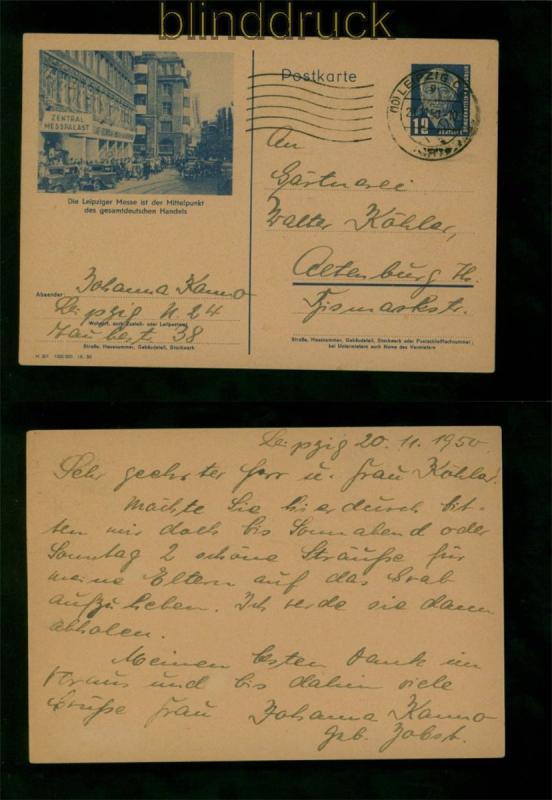 blinddruck
ZENTRAL
MESSPALAST
Die Leipziger Messe ist der Mittelpunkt
des gesamtdeutschen Handels
Postkarte
LEIPZIG C
12
An
Gärtnerei
Walter Köhler,
Altenburg Th.
Bismarkstr.
Straße, Hausnummer, Gebäudeteil, Stockwerk oder Postschließfachnummer;
bei Untermietern auch Name des Vermieters
Absender: Johanna Kanno
Leipzig N. 24
Wohnort, auch Zustell- oder Leitpostamt
38
Straße, Hausnummer, Gebäudeteil, Stockwerk
Leipzig 20. 11. 1950
Sehr geehrter Herr u. Frau Köhler!
Möchte Sie hierdurch bit-
ten mir doch bis Sonnabend oder
Sonntag 2 schöne Sträuße für
meine Eltern auf das Grab
aufzuheben. Ich werde sie dann
abholen.
Meinen besten Dank im
Voraus und bis dahin viele
Grüße Frau Johanna Kanno
geb. Zobst.